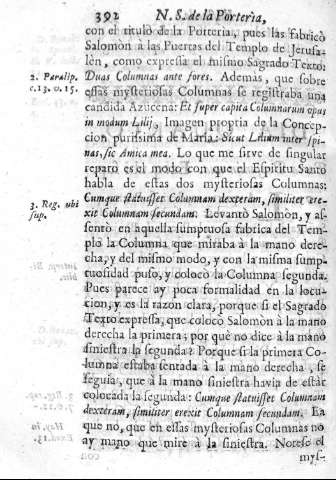 392 N. S. de la Porteria,
con el titulo de la Porteria, pues las fabricò
Salomòn à las Puertas del Templo de Jerusa-
lén, como expresa el mismo Sagrado Texto:
2. Paralip. Duas Columnas ante fores. Además, que sobre
c.13. v. 15. essas mysteriosas Columnas se registraba una
candida Azucena: Et super capita Columnarum opus
in modum Lilij, Imagen propria de la Concep-
cion purissima de Maria: Sicut Lilium inter spi-
nas, sic Amica mea. Lo que me sirve de singular
reparo es el modo con que el Espiritu Santo
habla de estas dos mysteriosas Columnas:
3. Reg. ubi Cumque statuisset Columnam dexteram, similiter ere-
sup. xit Columnam secundam: Levantò Salomòn, y as-
sentò en aquella sumptuosa fabrica del Tem-
plo la Columna que miraba à la mano dere-
cha, y del mismo modo, y con la misma sump-
tuosidad puso, y colocò la Columna segunda.
Pues parece ay poca formalidad en la locu-
cion, y es la razon clara, porque si el Sagrado
Texto expressa, que colocò Salomòn à la mano
derecha la primera; por què no dice à la mano
siniestra la segunda? Porque si la primera Co-
lumna estaba sentada à la mano derecha, se
seguia, que à la mano siniestra havia de estàr
colocada la segunda: Cumque statuisset Columnam
dexteram, similiter erexit Columnam secundam. Ea
que no, que en essas mysteriosas Columnas no
ay mano que mire à la siniestra. Notese el
mys-